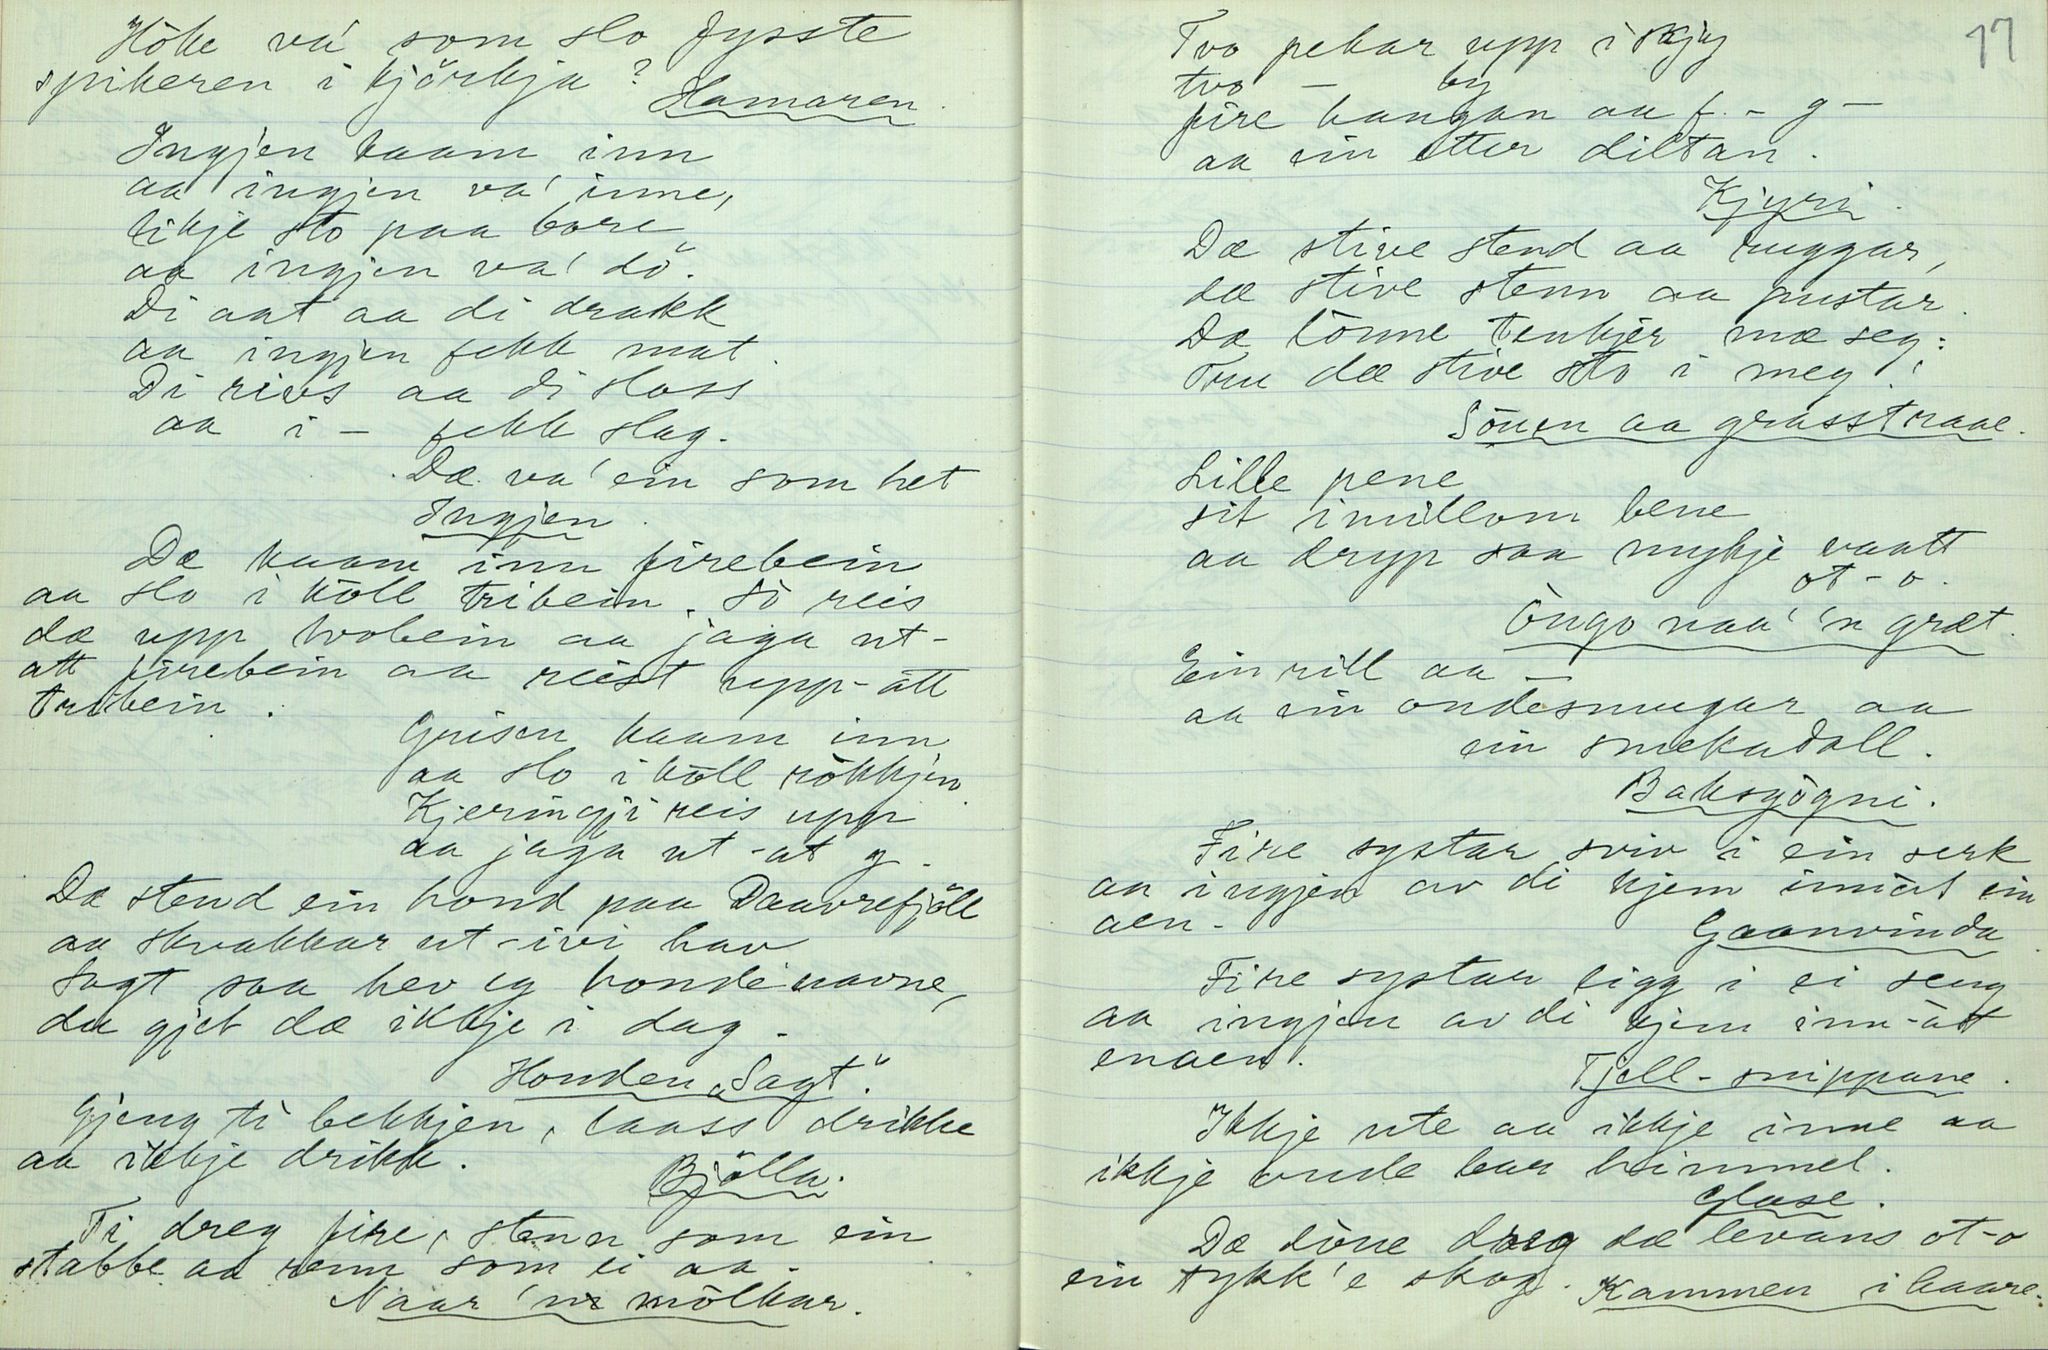 Höke va' som slo fysste
spikeren i kjörkja?
Hamaren.
Ingjen kaam inn
aa ingjen va' inne,
likje sto paa bore
aa ingjen va' dö.
Di aat aa di drakk
aa ingjen fekk mat.
Di reivs aa di sloss
aa i – fekk slag.
Dæ va' ein som het
Ingjen.
Dæ kaam inn firebein
aa slo i köll tribein. Sö reis
dæ upp tvobein aa jaga ut-
att firebein aa reist upp-att
tribein.
Grisen kaam inn
aa slo i köll rökkjen
Kjeringji reis upp
aa jaga ut-at g-
Dæ stend ein hond paa Daavrefjöll
aa skvakkar ut-ivi hav
Sagt saa hev eg hondenavne,
du gjet dæ ikkje i dag.
Honden „Sagt".
Gjeng ti bekkjen, laass drikke
aa ikkje drikk.
Bjölla.
Ti dreg fire, stenn som ein
stabbe aa renn som ei aa.
Naar 'n mölkar.
17
Tvo pekar upp i skjy
tvo – – by
fire hangan aa f. – g –
aa ein etter diltan.
Kjyri.
Dæ stive stend aa ruggar,
dæ stive stenn aa pustar.
Dæ lönne tenkjer mæ seg:
Tru dæ stive sto i meg!
Sönen aa grasstraae.
Lille pene
sit imillom bene
aa dryp saa mykje vaatt
ot-o.
Öugo naa' 'n græt.
Ein rill aa –
aa ein ondesmugar aa
ein smekadall.
Baksyögni.
Fire systar sviv i ein serk
aa ingjen av di kjem inniat ein
aen.
Gaanvinda.
Fire systar ligg i ei seng
aa ingjen av di kjem inn-ått
enaen.
Tjell-snippane.
Ikkje ute aa ikkje inne aa
ikkje onde bar himmel.
Glase.
Dæ döue dreg dæ levans ot-o
ein tykk'e skog.
Kammen i haare.